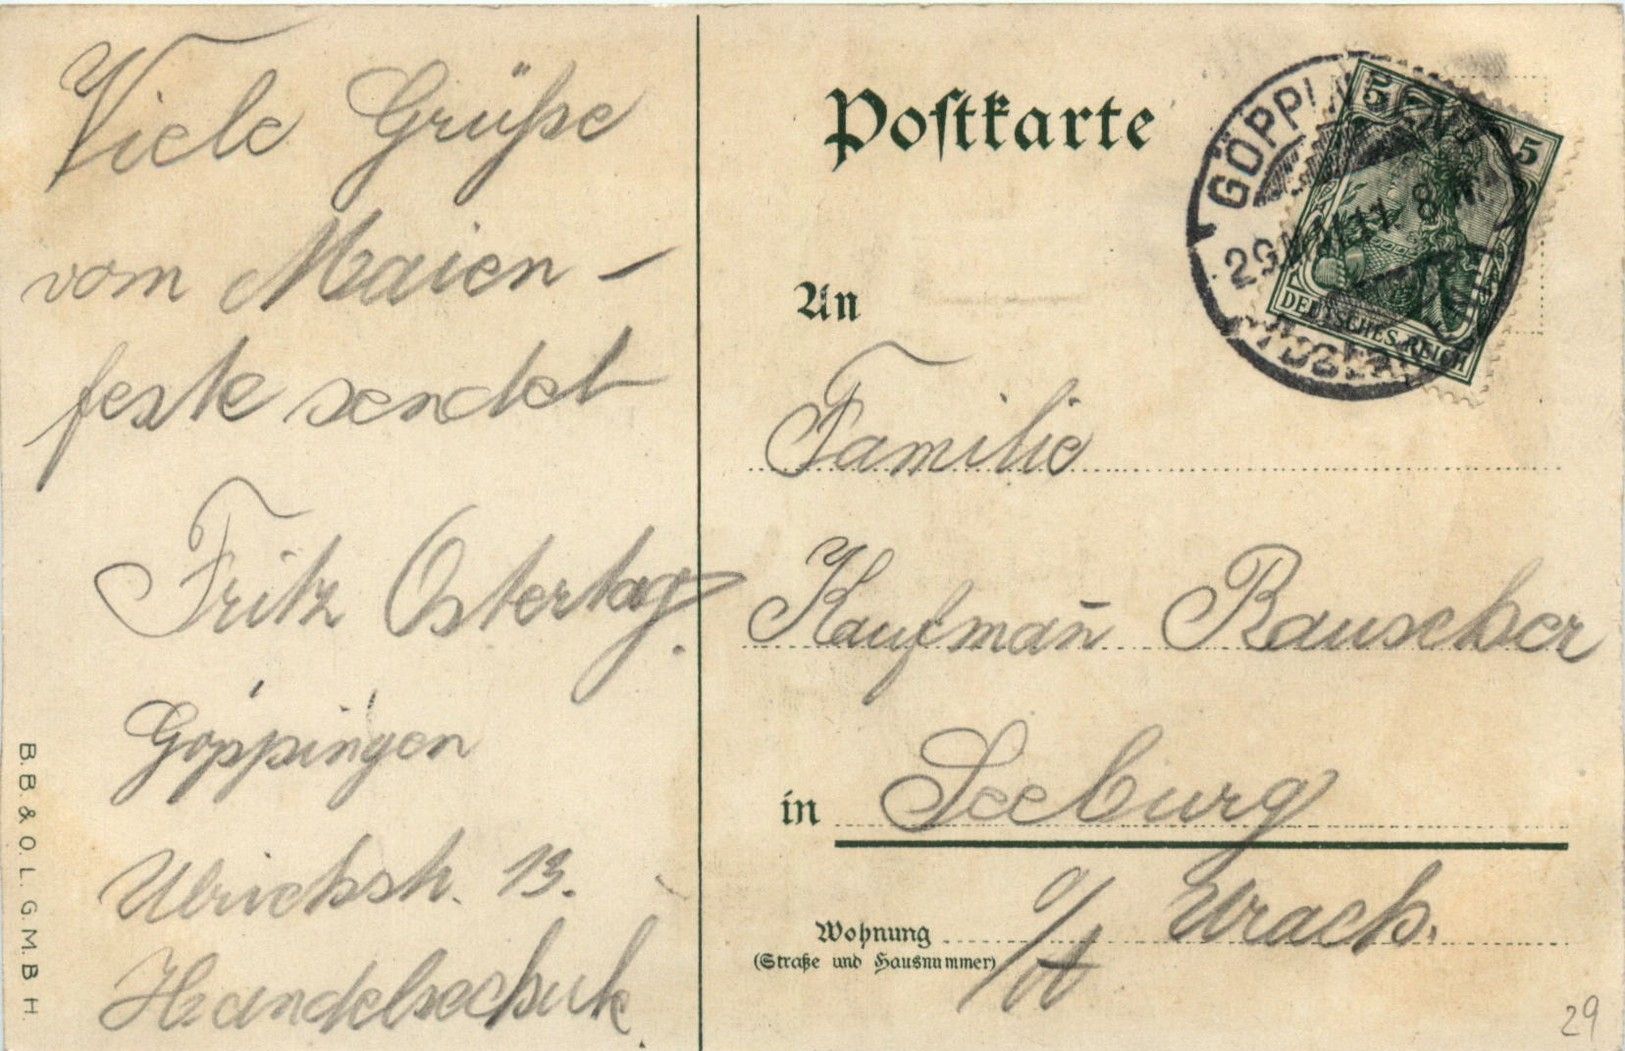 Viele Grüße
vom Maien-
feste sendet
Fritz Ostertag.
Göppingen
Ulrichstr. 13.
Handelsschule.
B.B. & O.L. G.M.B.H.
Postkarte
GÖPPINGEN
29 MAI 11 8
5 5
DEUTSCHES REICH
An
Familie
Kaufmañ Rauscher
in Seeburg
Wohnung
(Straße und Hausnummer)
Urach.
29